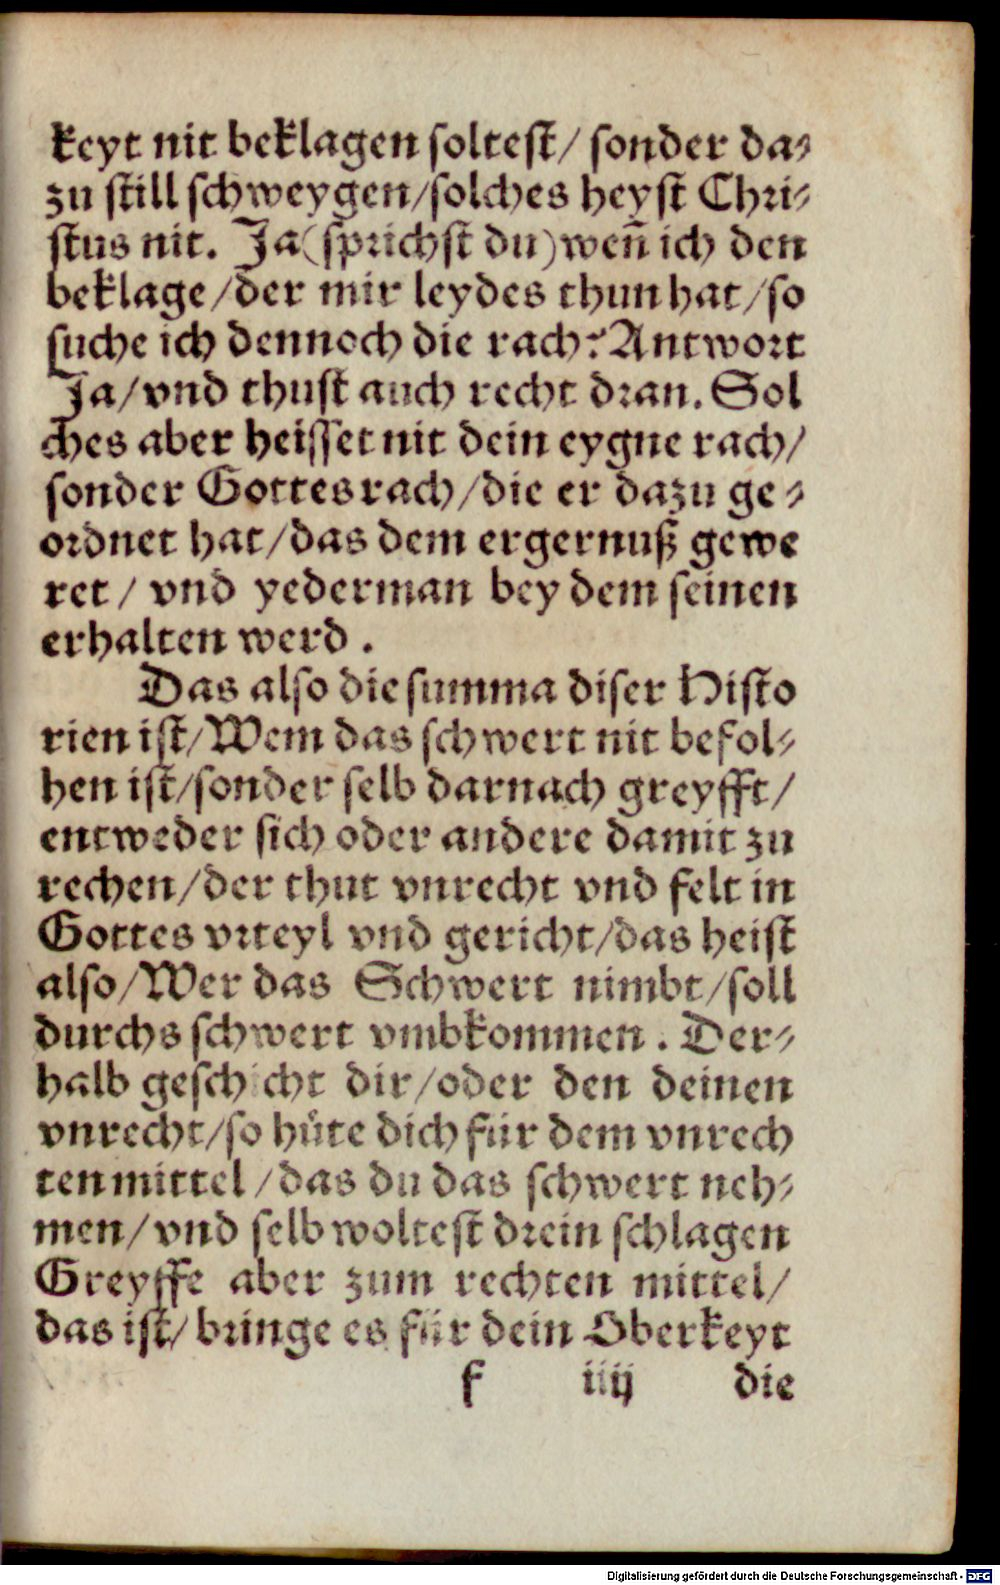 keyt nit beklagen soltest/ sonder da⸗
zu still schweygen/solches heyst Chri⸗
stus nit. Ja(sprichst du)wen̄ ich den
beklage/der mir leydes thun hat/so
suche ich dennoch die rach? Antwort
Ja/vnd thust auch recht dran. Sol
ches aber heisset nit dein eygne rach/
sonder Gottes rach/die er dazu ge⸗
ordnet hat/das dem ergernuß gewe
ret/ vnd yederman bey dem seinen
erhalten werd.
Das also die summa diser Histo
rien ist/Wem das schwert nit befol⸗
hen ist/sonder selb darnach greyfft/
entweder sich oder andere damit zu
rechen/der thut vnrecht vnd felt in
Gottes vrteyl vnd gericht/das heist
also/Wer das Schwert nimbt/soll
durchs schwert vmbkommen. Der⸗
halb geschicht dir/oder den deinen
vnrecht/so hüte dich für dem vnrech
ten mittel/das du das schwert neh⸗
men/vnd selb woltest drein schlagen
Greyffe aber zum rechten mittel/
das ist/bringe es für dein Oberkeyt
f iiij die
Digitalisierung gefördert durch die Deutsche Forschungsgemeinschaft - DFG